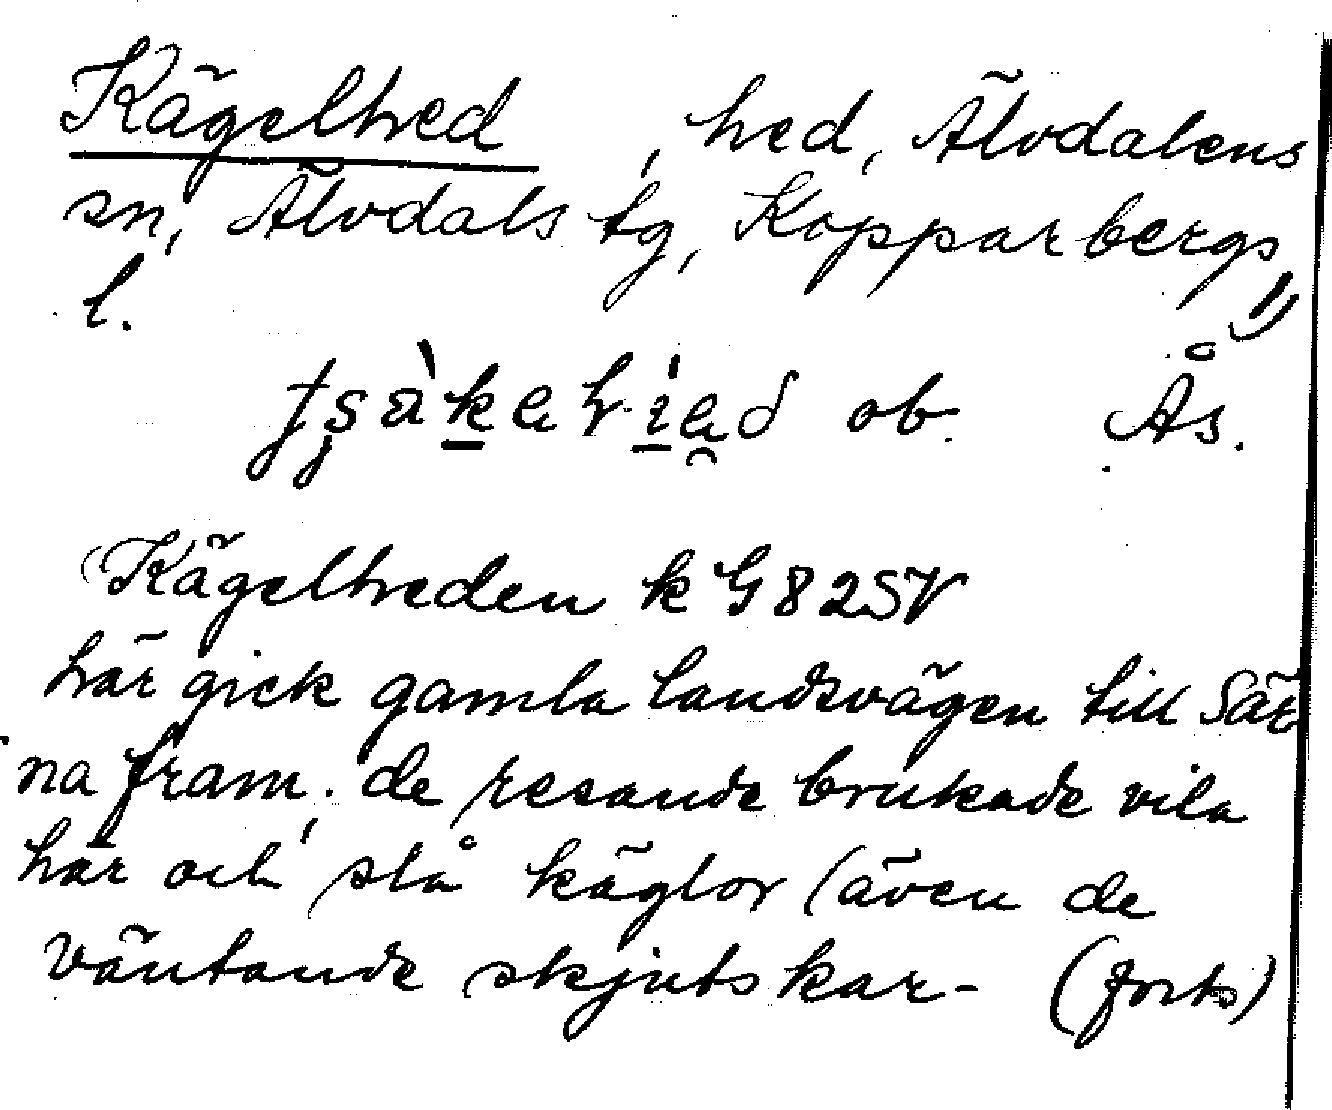 Kägelhed, hed, Älvdalens
sn, Älvdals tg, Kopparbergs
l.
ob. Ås.
Kägelheden k G 82 SV
här gick gamla landsvägen till Sär
na fram; de resande brukade vila
här och slå käglor (även de
väntande skjutskar- (forts)